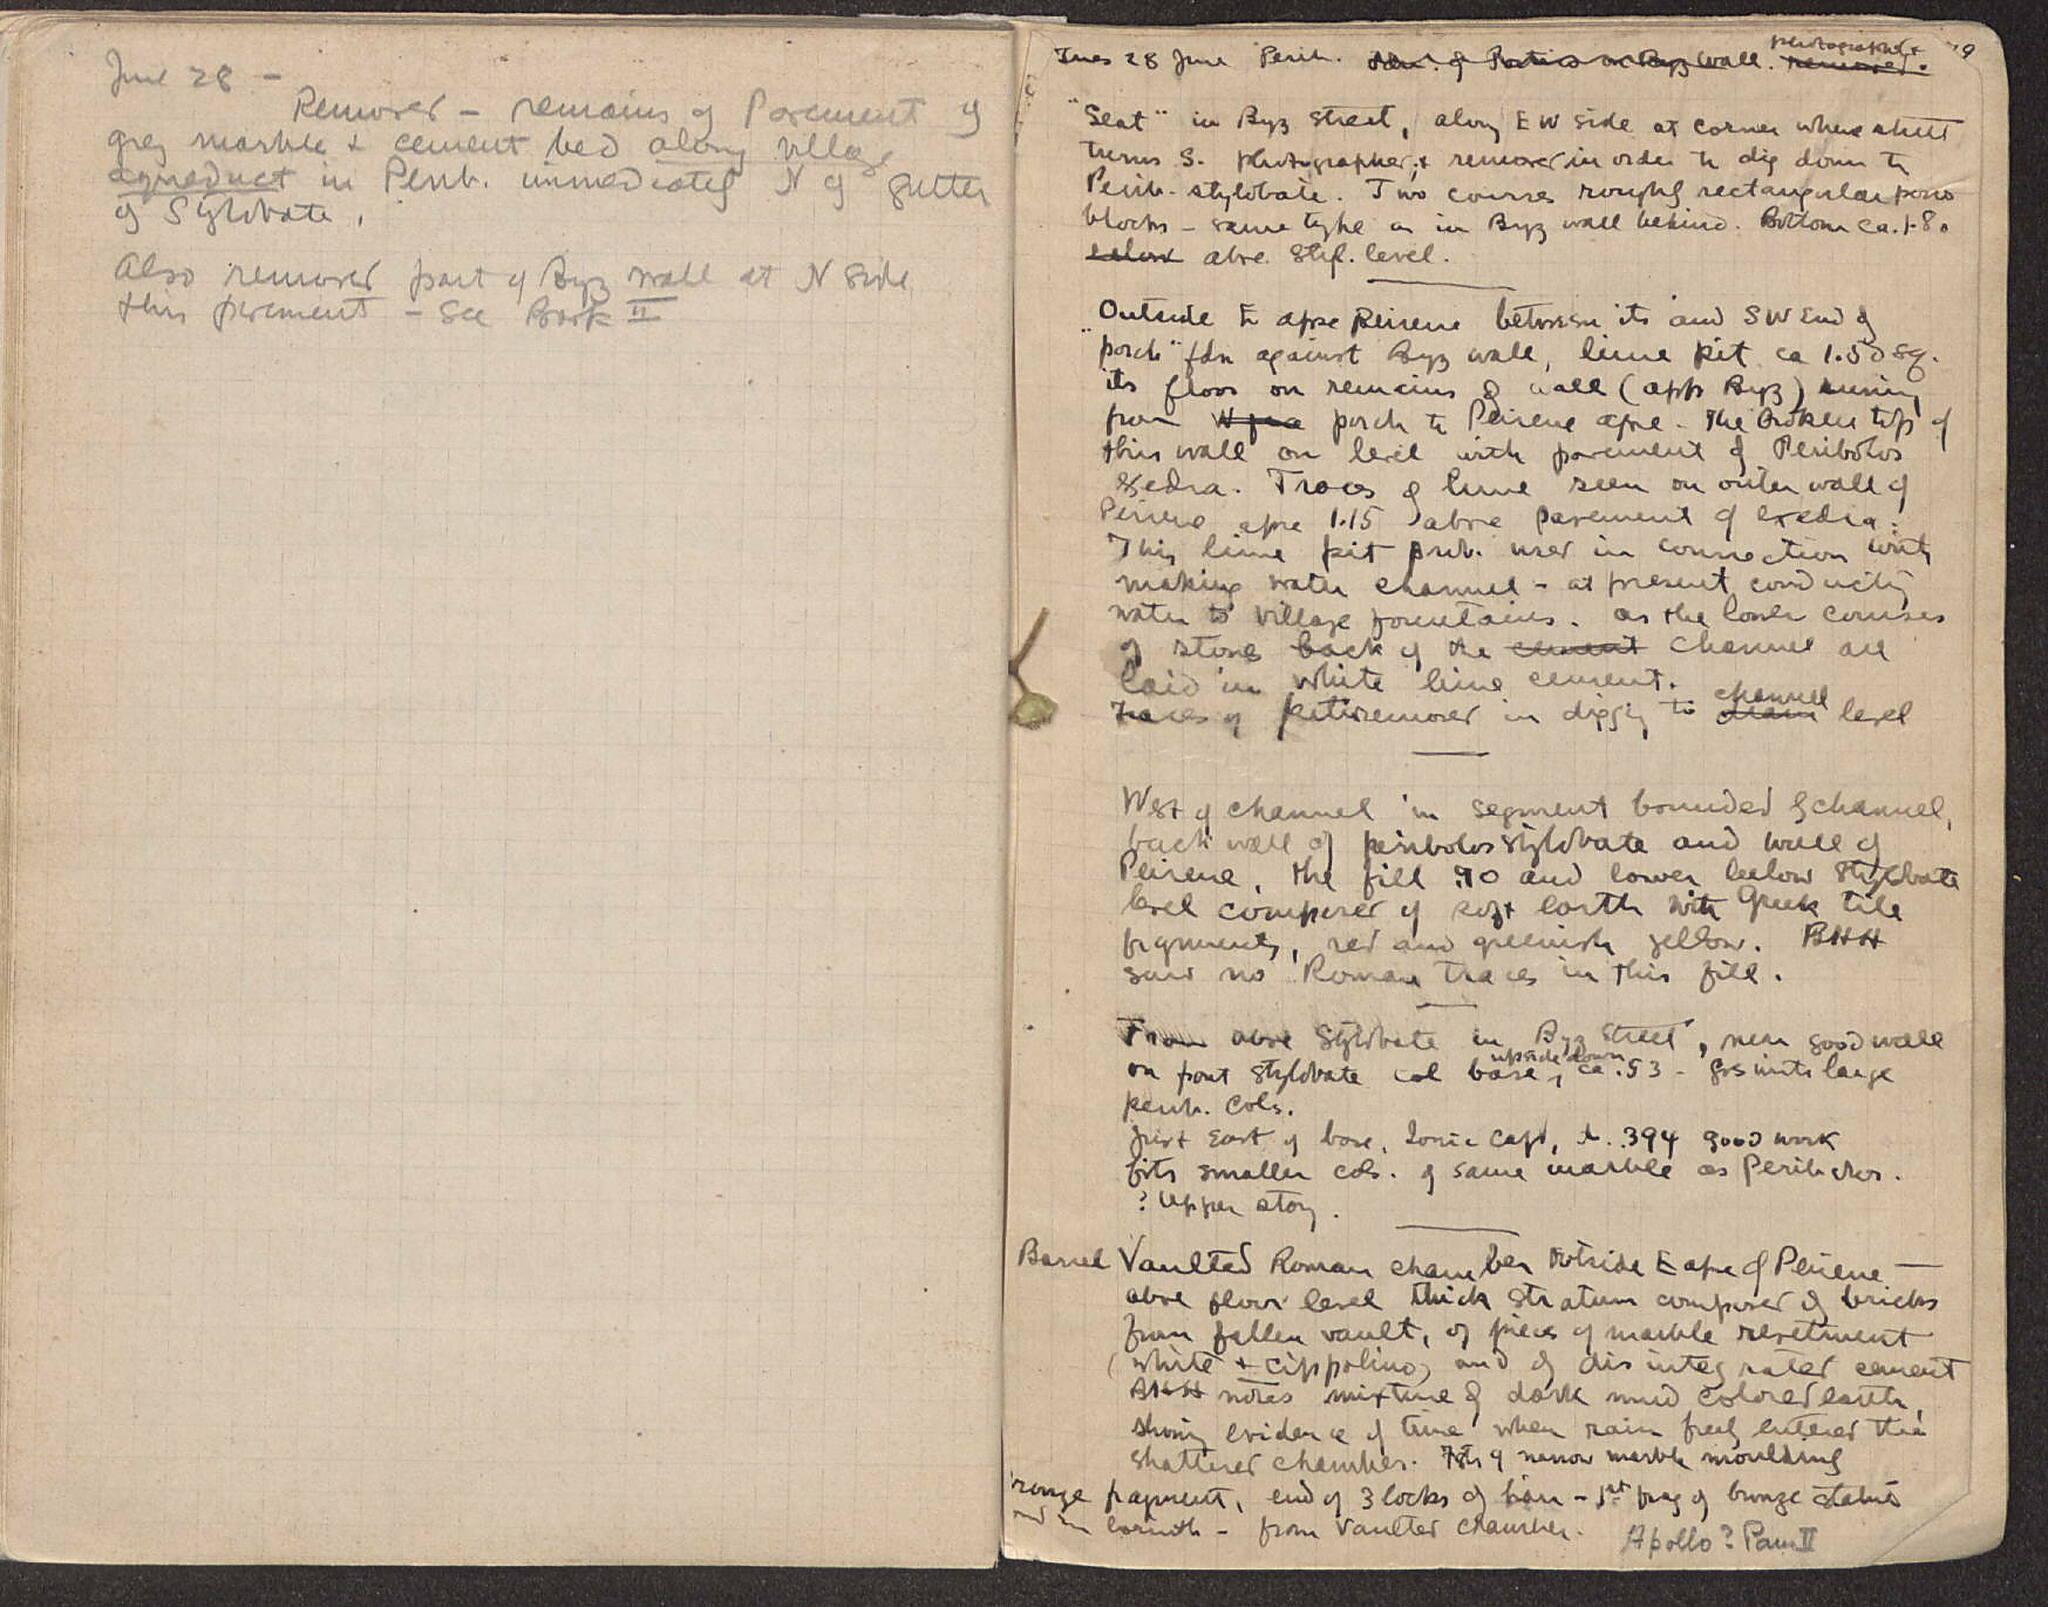 June 28 -
Removed - remains of Pavement of
grey marble & cement bed along village
aqueduct in Perib. immediately N of gutter
of Stylobate.
Also removed part of Byz wall at N side
this pavement - See Book II
Tues 28 June Perib. of Portico on Byz wall. photographed & removed.
"Seat" in Byz street, along E W side at corner where street
turns S. photographed & removed in order to dig down to
Perib. stylobate. Two courses roughly rectangular poros
blocks - same type as in Byz wall behind. Bottom ca. 1.80
below above styl. level.
Outside E apse Peirene between its and SW end of
"porch" fdn against Byz wall, lime pit ca 1.50 sq.
its floor on remains of wall (app Byz) running
from porch to Peirene apse. The broken top of
this wall on level with pavement of Peribolos
exedra. Traces of lime seen on outer wall of
Peirene apse 1.15 above pavement of exedra.
This lime pit prob. used in connection with
making water channel - at present conducting
water to village fountains. as the lower courses
of stones back of the cement channel are
laid in white lime cement.
Traces of pit removed in digging to drain channel level
West of channel in segment bounded by channel,
back wall of peribolos stylobate and wall of
Peirene, the fill .90 and lower below stylobate
level composed of soft earth with Greek tile
fragments, red and greenish yellow. BHH
saw no Roman traces in this fill.
From above Stylobate in Byz Street, near good wall
on front stylobate col base, upside down ca .53 - goes with large
perib. cols.
Just East of base, Ionic cap, d. .394 good work
fits smaller cols. of same marble as Peribolos.
? Upper story.
Barrel Vaulted Roman chamber outside E apse of Peirene -
above floor level thick stratum composed of bricks
from fallen vault, of pieces of marble revetment
(white & cippolino) and of disintegrated cement
BHH notes mixture of dark mud colored earth,
showing evidence of time when rain freely entered the
shattered chamber. of narrow marble moulding
fragment, end of 3 locks of hair - 1st frag of bronze statue
Corinth - from Vaulted chamber.
Apollo? Paus II